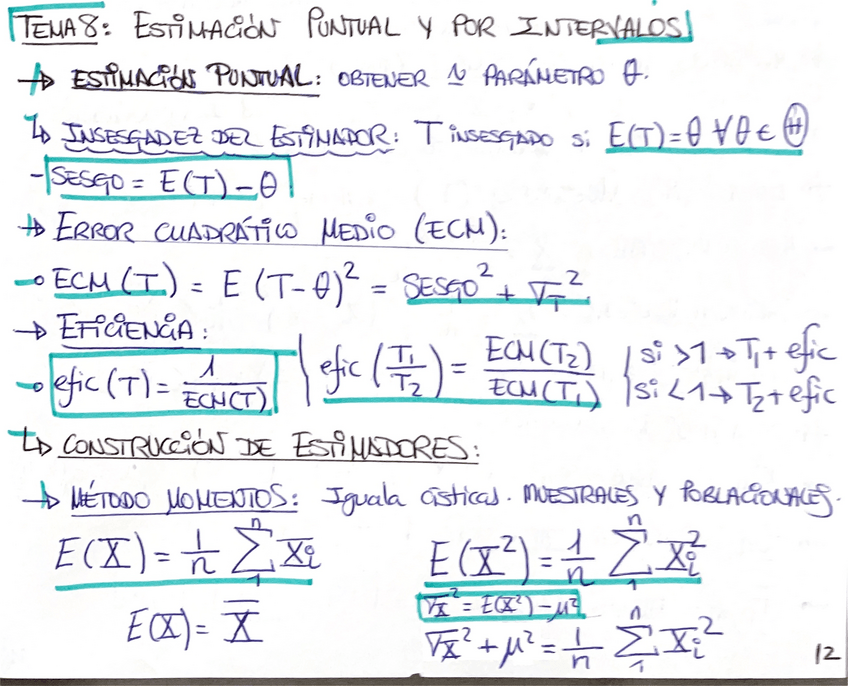 TEMA 8: ESTIMACIÓN PUNTUAL Y POR INTERVALOS
→ ESTIMACIÓN PUNTUAL: OBTENER PARÁMETRO θ.
↳ INSESGADEZ DEL ESTIMADOR: T INSESGADO si E(T)=θ ∀θ ∈ Θ
- SESGO = E(T) - θ
→ ERROR CUADRÁTICO MEDIO (ECM):
ECM (T) = E (T-θ)² = SESGO² + σ_T²
→ EFICIENCIA:
efic (T) = 1/ECM(T) | efic (T₁/T₂) = ECM(T₂)/ECM(T₁) { si >1 → T₁ + efic
si <1 → T₂ + efic
↳ CONSTRUCCIÓN DE ESTIMADORES:
→ MÉTODO MOMENTOS: Iguala císticas. MUESTRALES Y POBLACIONALES.
E(X) = 1/n Σ₁ⁿ Xi E(X²) = 1/n Σ₁ⁿ Xi²
σ_X² = E(X²) - μ²
E(X) = X̄ σ_X² + μ² = 1/n Σ₁ⁿ Xi²
12